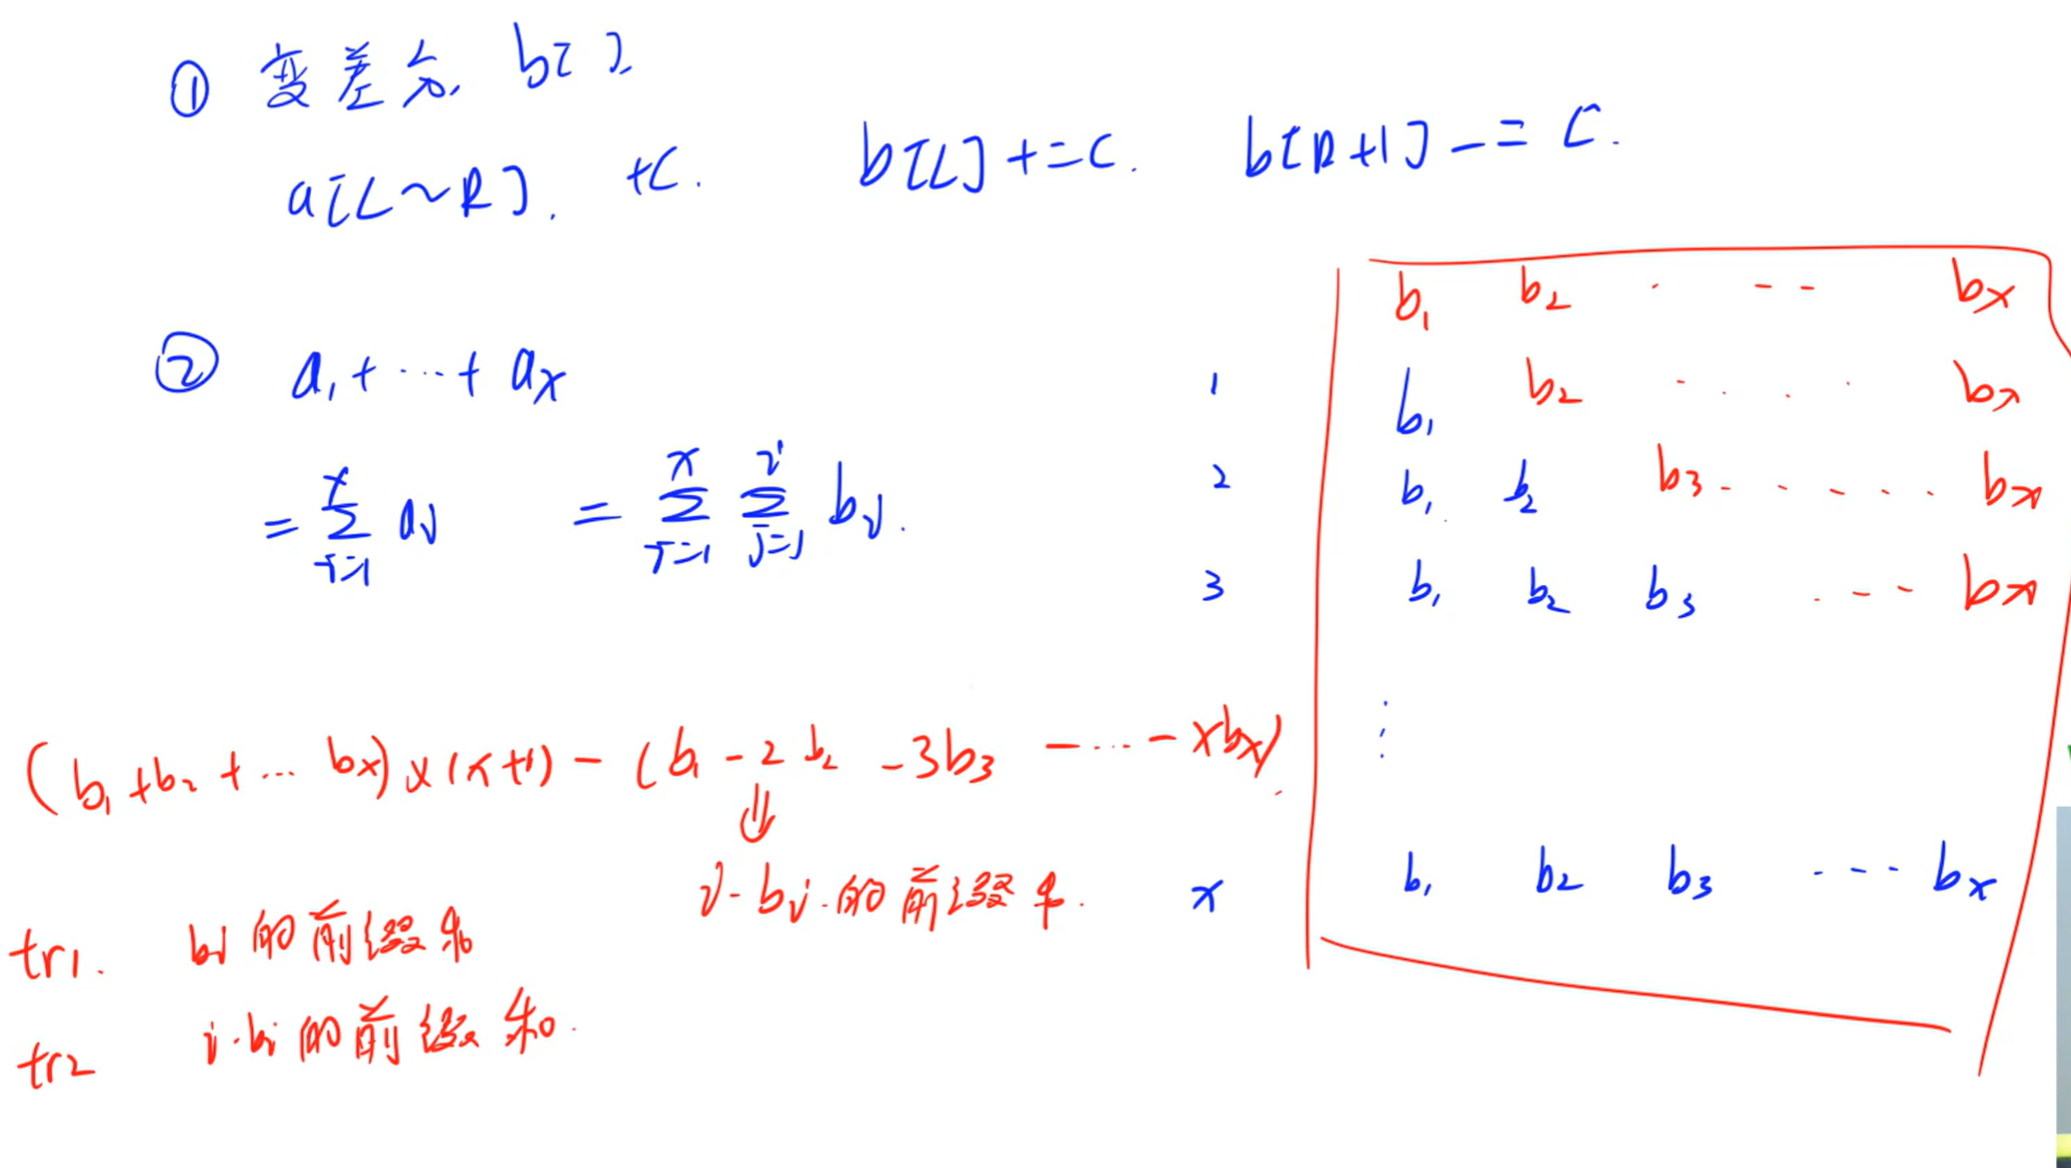 ① 变差分, b[ ]
a[L~R]. +C. b[L]+=C. b[R+1]-=C.
② a₁+…+aₓ
= Σ_{i=1}^{x} aᵢ = Σ_{i=1}^{x} Σ_{j=1}^{i} bⱼ.
b₁ b₂ · - - bₓ
1 b₁ b₂ · · · · bₓ
2 b₁ b₂ b₃ - · · · · · bₓ
3 b₁ b₂ b₃ · - - - bₓ
⋮
x b₁ b₂ b₃ · - - - bₓ
(b₁+b₂+… bₓ)×(x+1)-(b₁-2b₂-3b₃-…-xbₓ)
⇓
i·bᵢ的前缀和.
tr1. bᵢ的前缀和
tr2 i·bᵢ的前缀和.